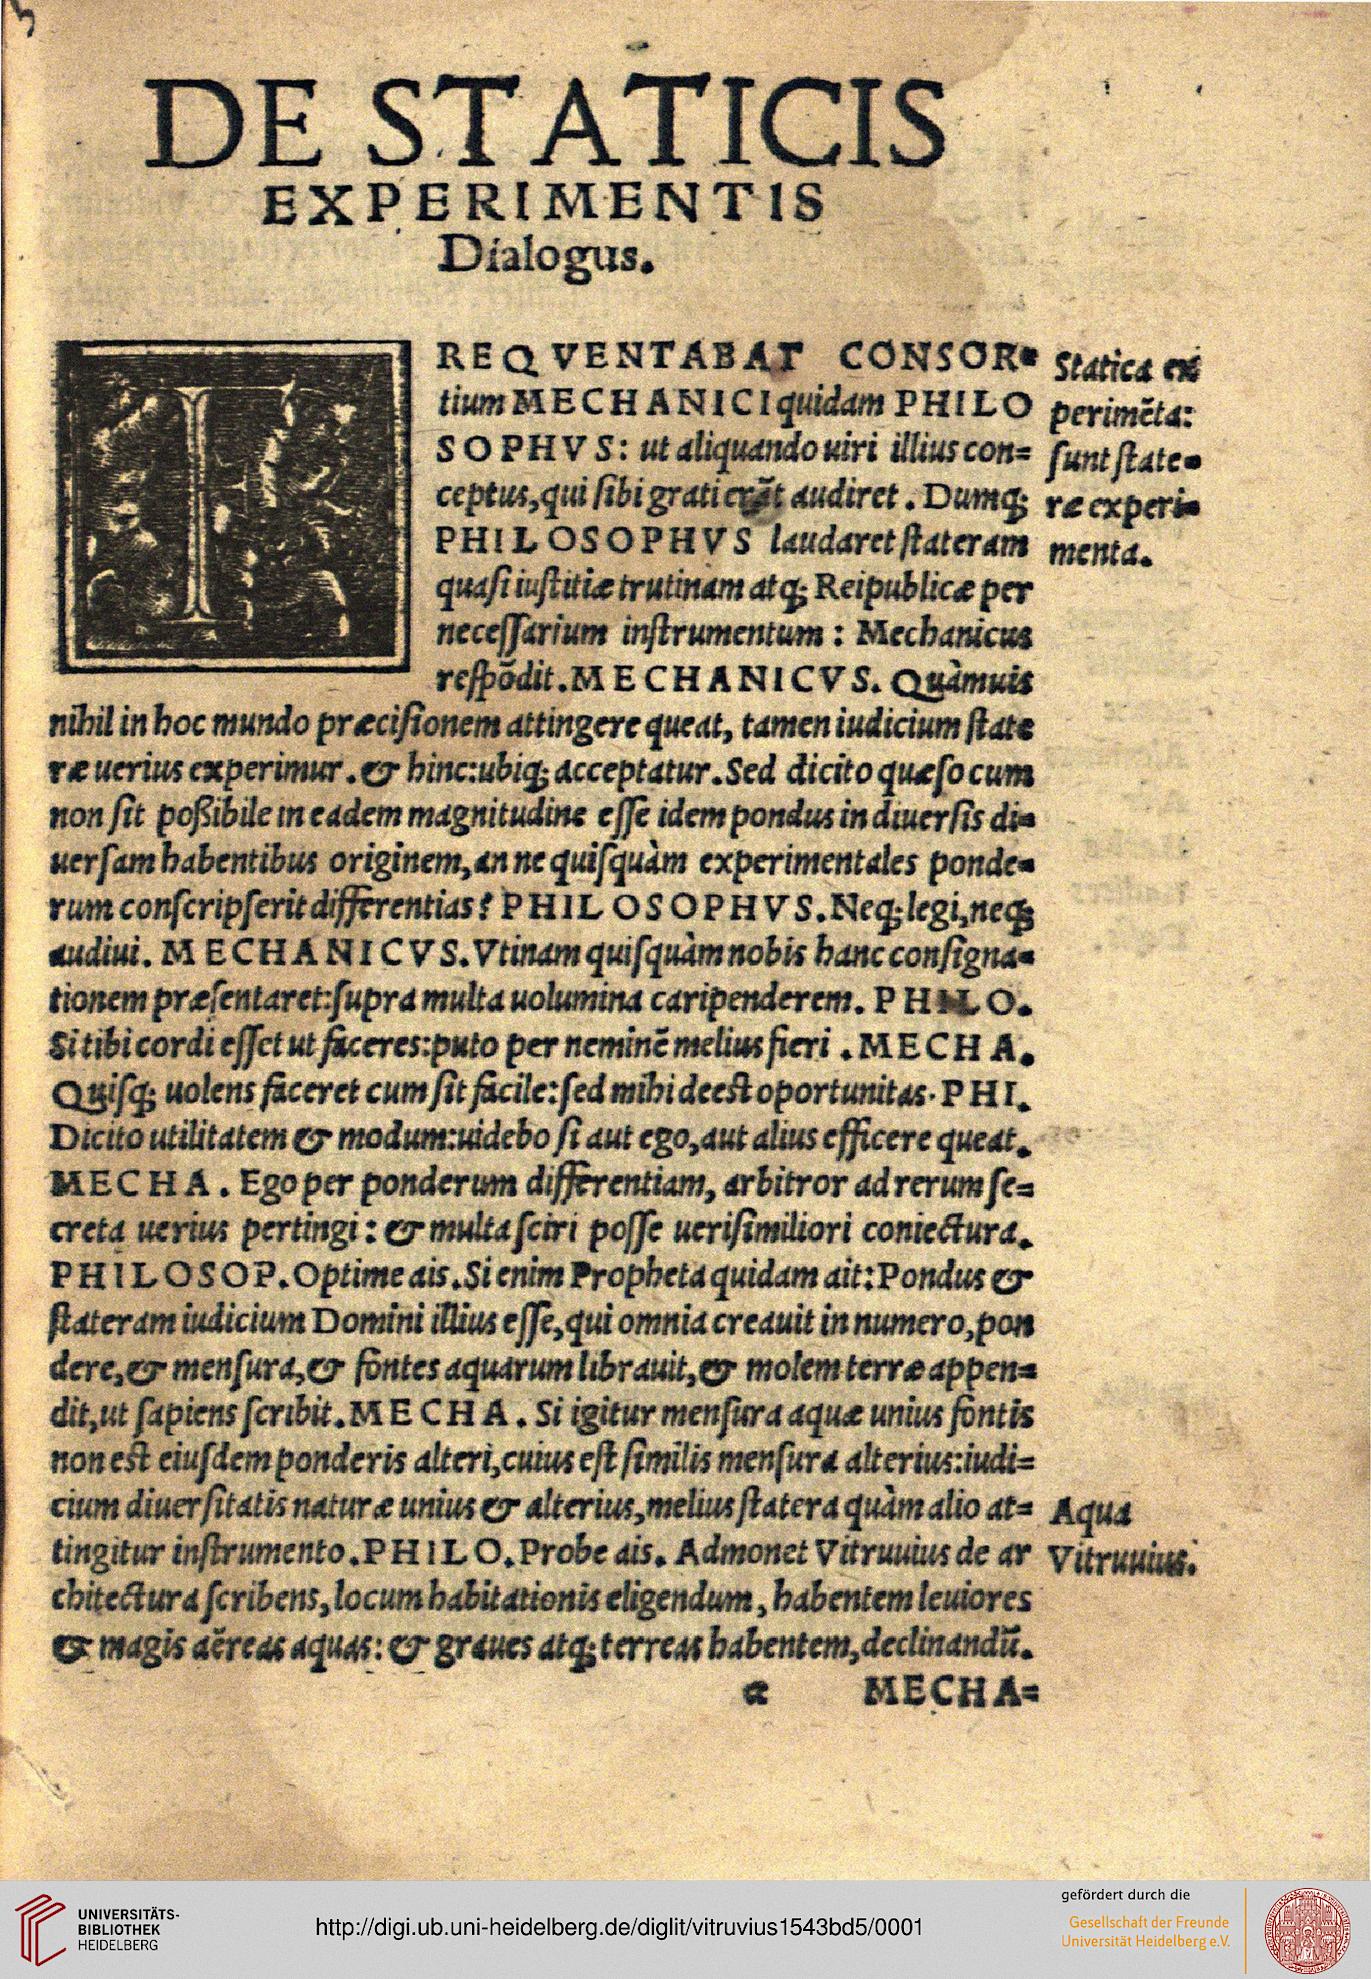 DE STATICIS
EXPERIMENTIS
Dialogus.
FREQVENTABAT CONSOR=
tium MECHANICI quidam PHILO
SOPHVS: ut aliquando uiri illius con=
ceptus, qui sibi grati erãt audiret. Dumq;
PHILOSOPHVS laudaret stateram
quasi iustitiæ trutinam atq; Reipublicæ per
necessarium instrumentum: Mechanicus
respõdit. MECHANICVS. Quàmuis
nihil in hoc mundo præcisionem attingere queat, tamen iudicium state
ræ uerius experimur. & hinc: ubiq; acceptatur. Sed dicito quæso cum
non sit poßibile in eadem magnitudine esse idem pondus in diuersis di=
uersam habentibus originem, an ne quisquàm experimentales ponde=
rum conscripserit differentias? PHILOSOPHVS. Neq; legi, neq;
audiui. MECHANICVS. Vtinam quisquàm nobis hanc consigna=
tionem præsentaret: supra multa uolumina caripenderem. PHILO.
Si tibi cordi esset ut faceres: puto per neminẽ melius fieri. MECHA.
Quisq; uolens faceret cum sit facile: sed mihi deest oportunitas. PHI.
Dicito utilitatem & modum: uidebo si aut ego, aut alius efficere queat.
MECHA. Ego per ponderum differentiam, arbitror ad rerum se=
creta uerius pertingi: & multa sciri posse uerisimiliori coniectura.
PHILOSOP. Optime ais. Si enim Propheta quidam ait: Pondus &
stateram iudicium Domini illius esse, qui omnia creauit in numero, pon
dere, & mensura, & fontes aquarum librauit, & molem terræ appen=
dit, ut sapiens scribit. MECHA. Si igitur mensura aquæ unius fontis
non est eiusdem ponderis alteri, cuius est similis mensura alterius: iudi=
cium diuersitatis naturæ unius & alterius, melius statera quàm alio at=
tingitur instrumento. PHILO. Probe ais. Admonet Vitruuius de ar
chitectura scribens, locum habitationis eligendum, habentem leuiores
& magis aëreas aquas: & graues atq; terreas habentem, declinandũ.
a MECHA=
Statica ex
perimẽta:
sunt state=
ræ experi=
menta.
Aqua
Vitruuius.
UNIVERSITÄTS-
BIBLIOTHEK
HEIDELBERG
http://digi.ub.uni-heidelberg.de/diglit/vitruvius1543bd5/0001
gefördert durch die
Gesellschaft der Freunde
Universität Heidelberg e.V.